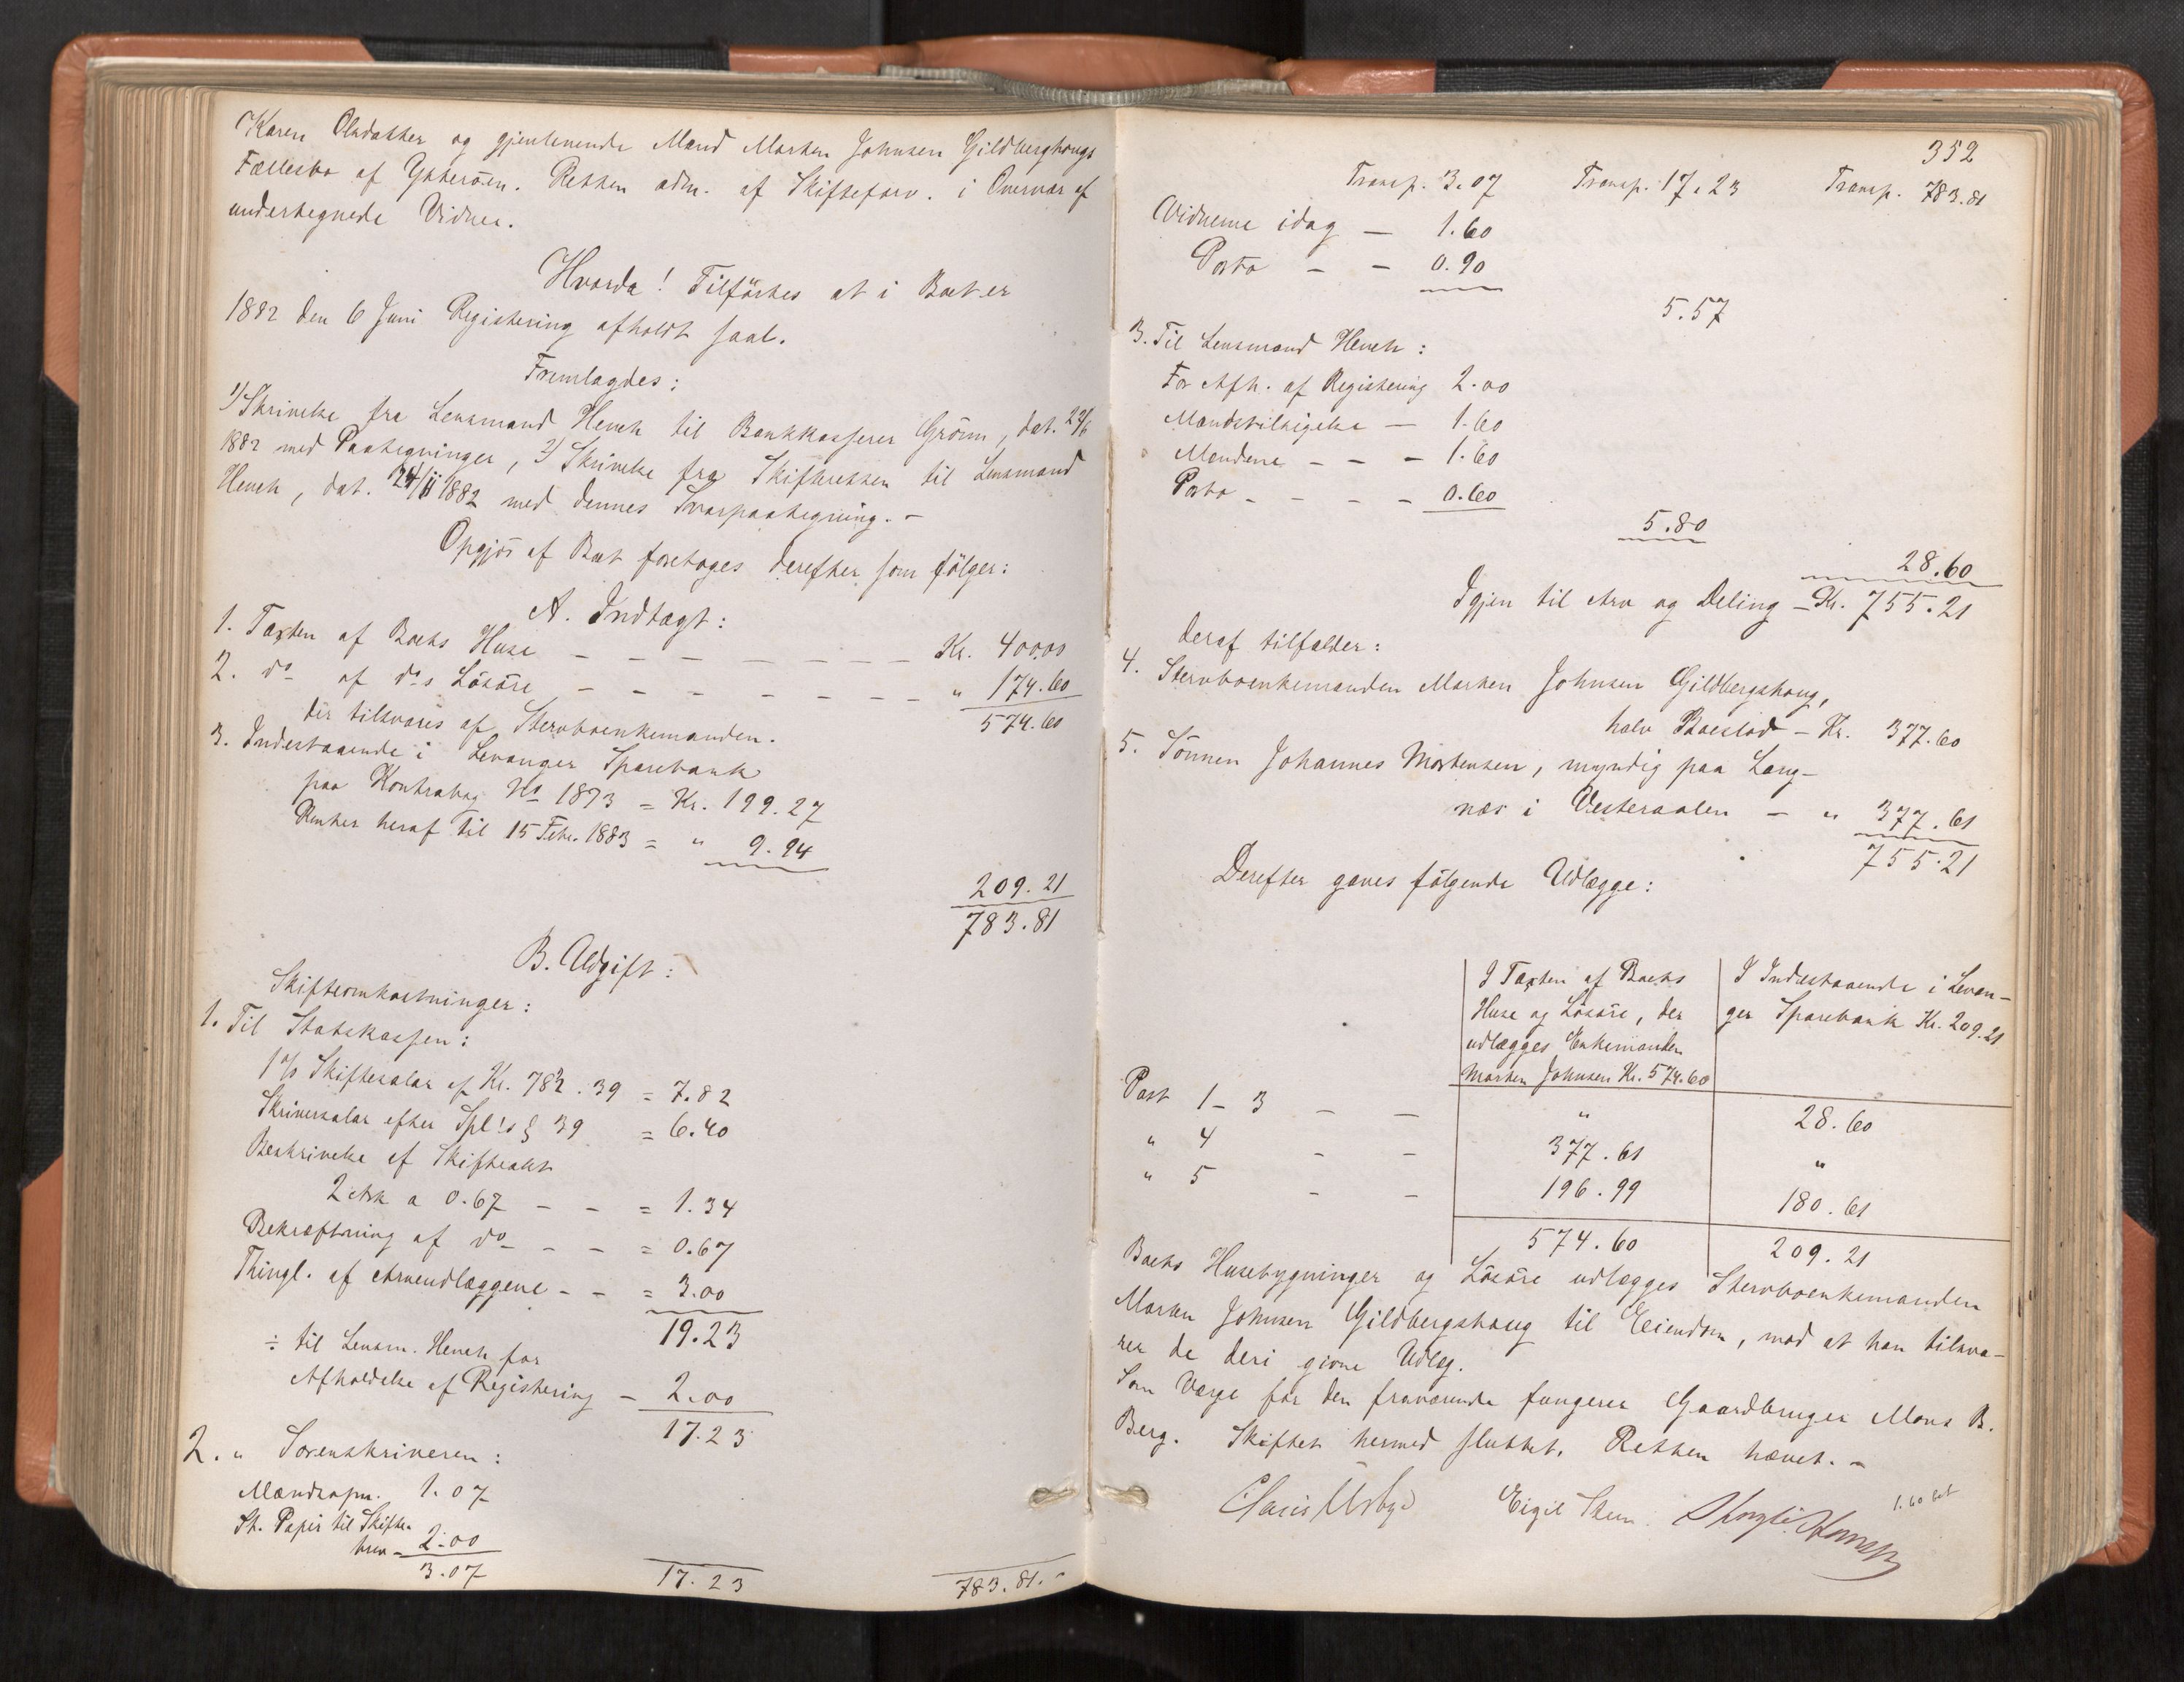 Karen Olsdatter og gjenlevende Mand Morten Johnsen Gildberghougs
Fællesbo af Ytterøen. Retten adm. af Skifteforv. i Overvær af
undertegnede Vidner.
Hvorda! Tilførtes at i Boet er
1882 den 6 Juni Registering afholdt saal.
Fremlagdes:
1) Skrivelse fra Lensmand Hench til Bankkasserer Grønn, dat. 22/6
1882 med Paategninger, 2) Skrivelse fra Skifteretten til Lensmand
Hench, dat. 24/11 1882 med dennes Svarpaategning. -
Opgjør af Boet foretoges derefter som følger:
A. Indtægt:
1. Taxten af Boets Huse - - - - - - - - Kr. 400.00
2. do af do's Løsøre - - - - - - - - " 174.60
der tilsvares af Stervboenkemanden. 574.60
3. Indestaaende i Levanger Sparebank
paa Kontrabog No 1873 = Kr. 199.27
Renter heraf til 15 Febr. 1883 = " 9.94
209.21
783.81
B. Udgift:
Skifteomkostninger:
1. Til Statskassen:
1 % Skiftesalær af Kr. 782.39 = 7.82
Skriversalær efter Spl's § 39 = 6.40
Beskrivelse af Skifteakt
2 Ark a 0.67 - - = 1.34
Bekræftning af do - - - = 0.67
Thingl. af Arveudlæggene - - = 3.00
19.23
÷ til Lensm. Hench for
Afholdelse af Registering - 2.00
17.23
2. " Sorenskriveren:
Mændsopn. 1.07
St. Papir til Skifte-
brev - 2.00
3.07 17.23 783.81. -
352
Transp. 3.07 Transp. 17.23 Transp. 783.81
Vidnerne idag - 1.60
Porto - - 0.90
5.57
3. Til Lensmand Hench:
For Afh. af Registering 2.00
Mandstilsigelse - 1.60
Mændene - - - 1.60
Porto - - - - 0.60
5.80
28.60
Igjen til Arv og Deling - Kr. 755.21
deraf tilfalder:
4. Stervboenkemanden Morten Johnsen Gildbergshoug,
halv Boeslod - Kr. 377.60
5. Sønnen Johannes Mortensen, myndig paa Lang-
næs i Vesteraalen - " 377.61
755.21
Derefter gaves følgende Udlægge:
I Taxten af Boets
Huse og Løsøre, der
udlægges Enkemanden
Morten Johnsen Kr. 574.60
I Indestaaende i Levan-
ger Sparebank Kr. 209.21
Post 1-3 - - " 28.60
" 4 - - 377.61 "
" 5 - - 196.99 180.61
574.60 209.21
Boets Husebygninger og Løsøre udlægges Stervboenkemanden
Morten Johnsen Gildbergshoug til Eiendom, mod at han tilsva-
rer de deri givne Udlæg.
Som Værge for den fraværende fungerer Gaardbruger Mons B.
Berg. Skiftet hermed sluttet. Retten hævet. -
Eigil Stem
1.60 bet